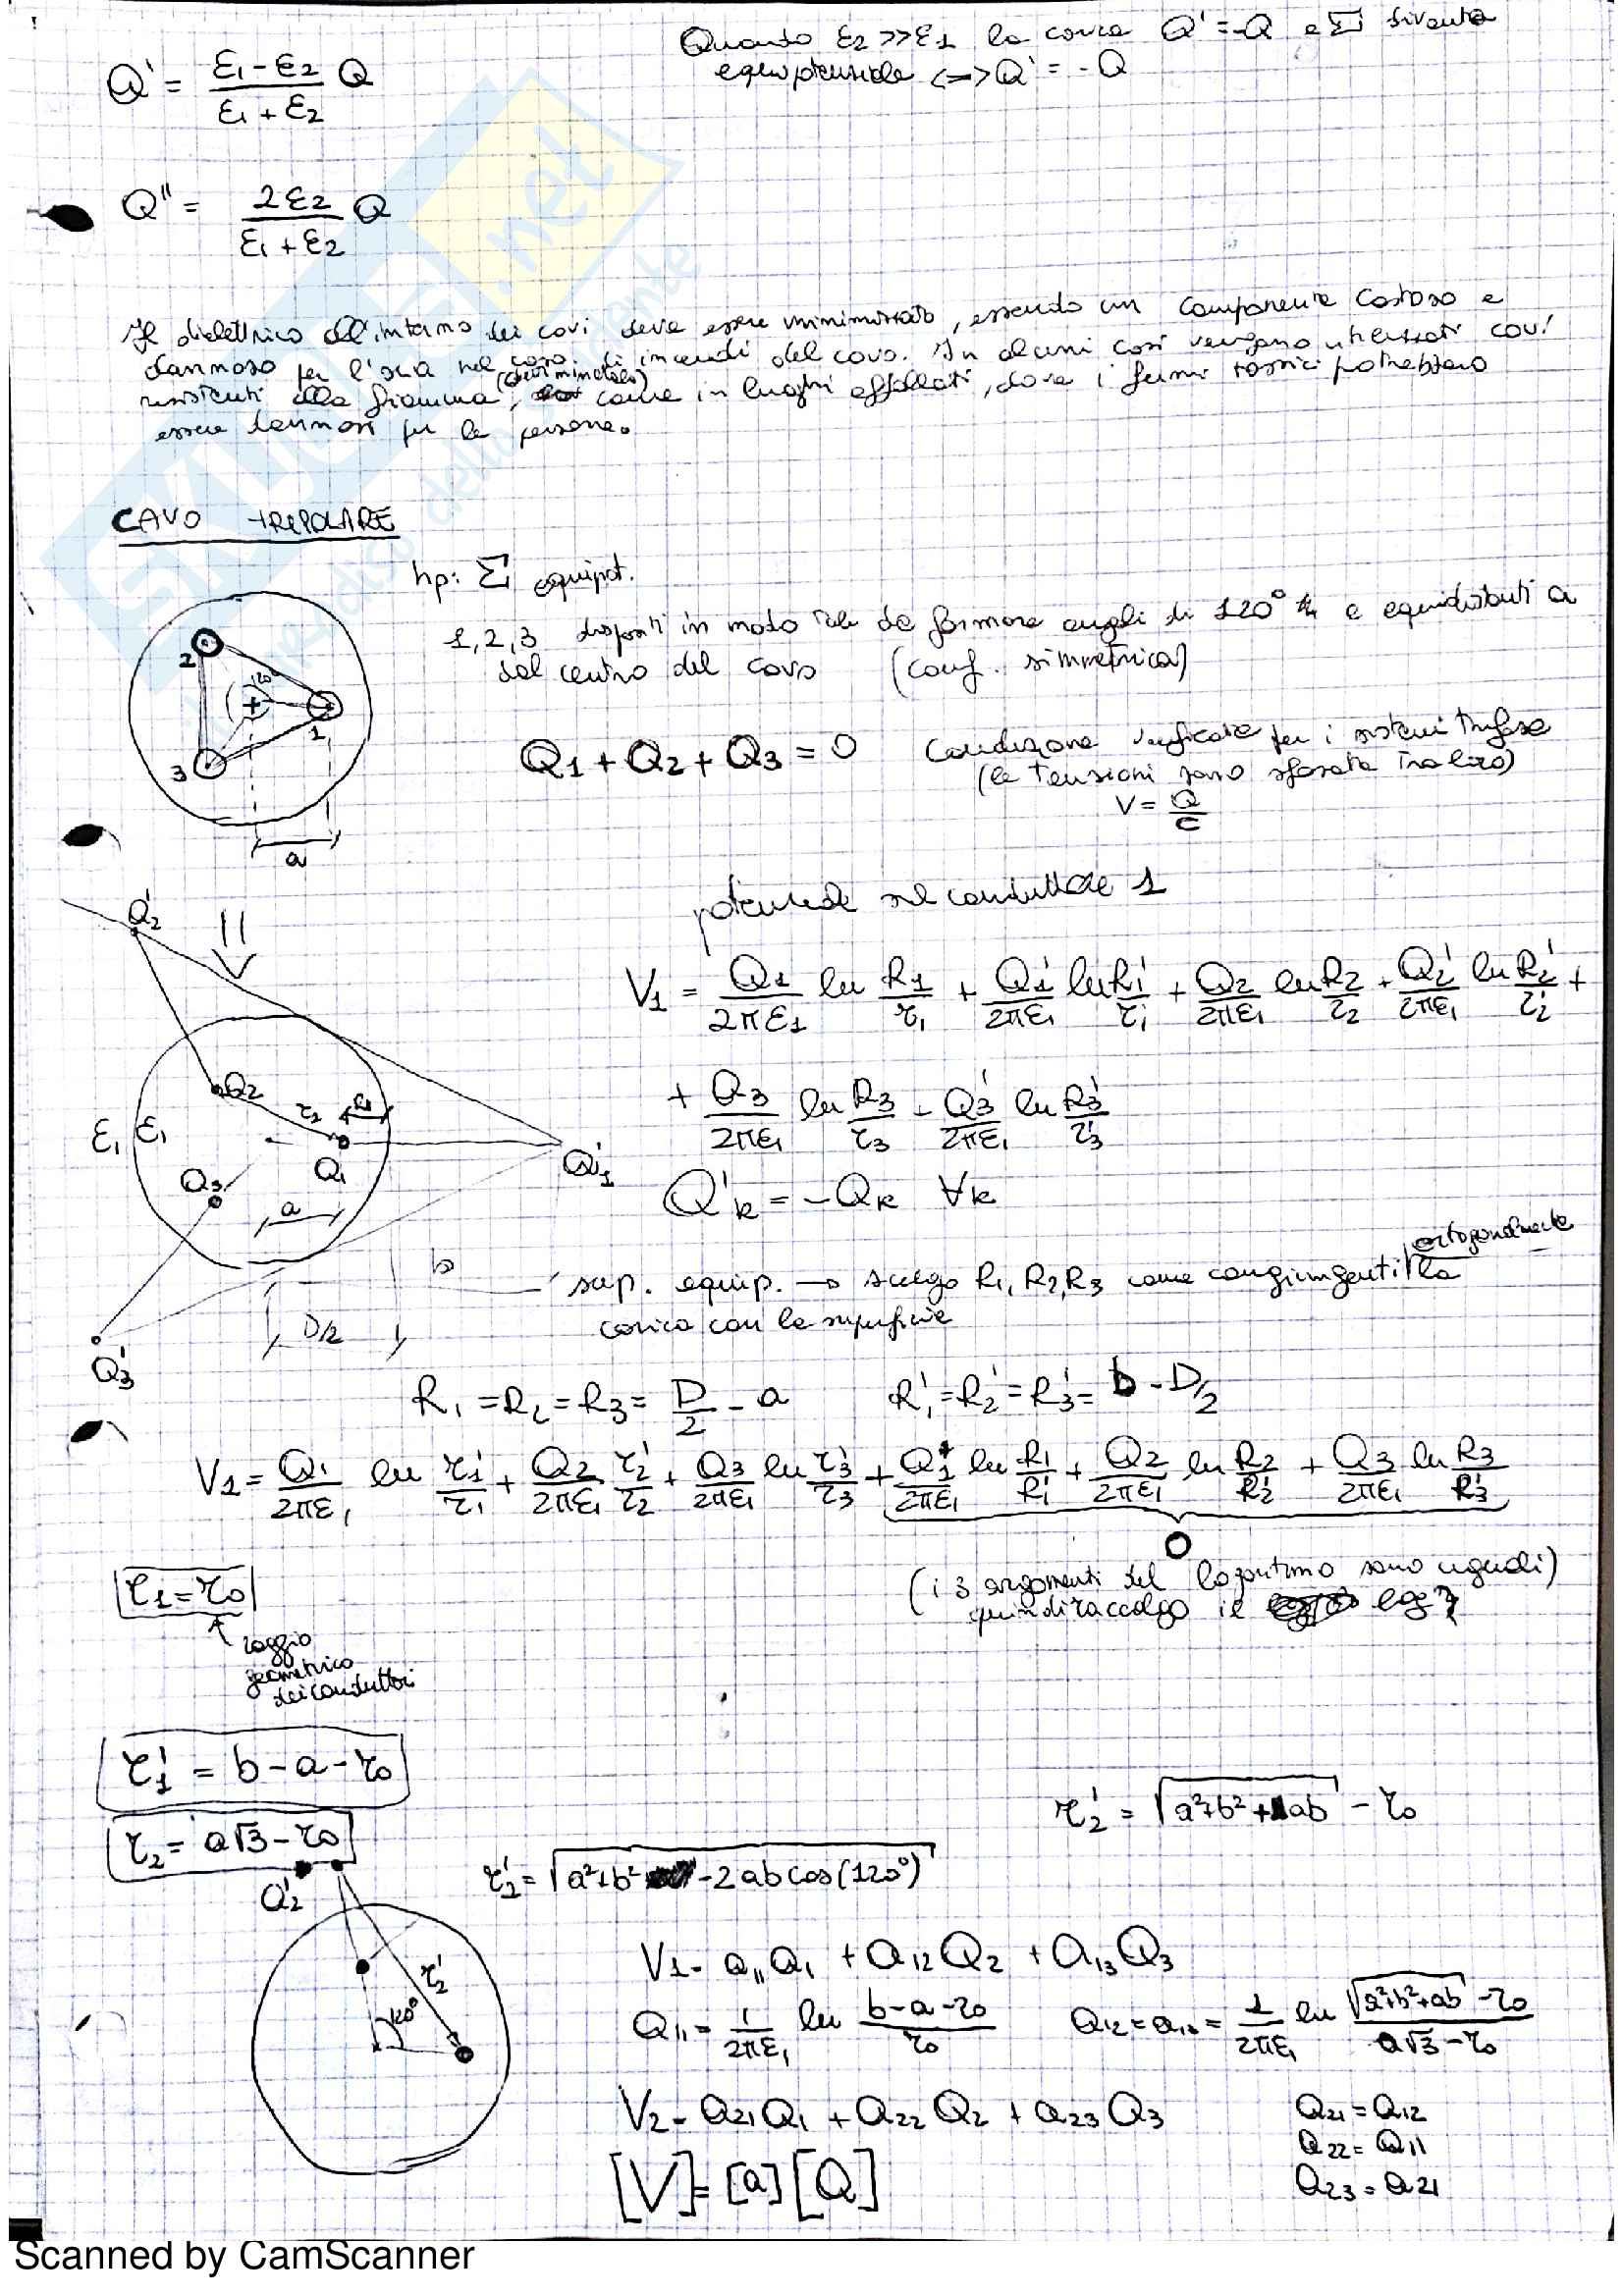 Q' = (ε1 - ε2)/(ε1 + ε2) Q
Quando ε2 >> ε1 la carica Q' = -Q e Σ diventa
equipotenziale <=> Q' = -Q
Q'' = 2ε2/(ε1 + ε2) Q
Il dielettrico all'interno dei cavi deve essere minimizzato, essendo un componente costoso e
dannoso per l'aria nel caso di incendi del cavo. In alcuni casi vengono utilizzati cavi
(cavi minerale)
resistenti alla fiamma, come in luoghi affollati, dove i fumi tossici potrebbero
essere dannosi per le persone.
CAVO TRIPOLARE
hp: Σ equipot.
1,2,3 disposti in modo tale da formare angoli di 120° e equidistanti a
dal centro del cavo (conf. simmetrica)
2
120°
1
3
a
Q1 + Q2 + Q3 = 0 Condizione verificata per i sistemi trifase
(le tensioni sono sfasate tra loro)
V = Q/C
potenziale sul conduttore 1
V1 = Q1/2πε1 ln R1/r1 + Q1'/2πε1 ln R1'/r1' + Q2/2πε1 ln R2/r2 + Q2'/2πε1 ln R2'/r2' +
+ Q3/2πε1 ln R3/r3 + Q3'/2πε1 ln R3'/r3'
Q'k = -Qk ∀k
Q2'
Q2
r2
R1
ε1 ε1
Q1
Q1'
Q3
a
b
D/2
Q3'
ortogonalmente
sup. equip. → scelgo R1, R2, R3 come congiungenti la
carica con la superficie
R1 = R2 = R3 = D/2 - a R1' = R2' = R3' = b - D/2
V1 = Q1/2πε1 ln r1'/r1 + Q2/2πε1 r2'/r2 + Q3/2πε1 ln r3'/r3 + Q1/2πε1 ln R1/R1' + Q2/2πε1 ln R2/R2' + Q3/2πε1 ln R3/R3'
0
(i 3 argomenti del logaritmo sono uguali)
quindi raccolgo il log
r1 = r0
raggio
geometrico
dei conduttori
r1' = b - a - r0
r2 = a√3 - r0
r2' = √(a²+b²+ab) - r0
r2' = √(a²+b² -2ab cos(120°))
Q2'
r2'
120°
V1 = a11Q1 + a12Q2 + a13Q3
a11 = 1/2πε1 ln (b-a-r0)/r0 a12 = a13 = 1/2πε1 ln (√(a²+b²+ab) - r0)/(a√3 - r0)
V2 = a21Q1 + a22Q2 + a23Q3
a21 = a12
a22 = a11
a23 = a21
[V] = [a][Q]
Scanned by CamScanner